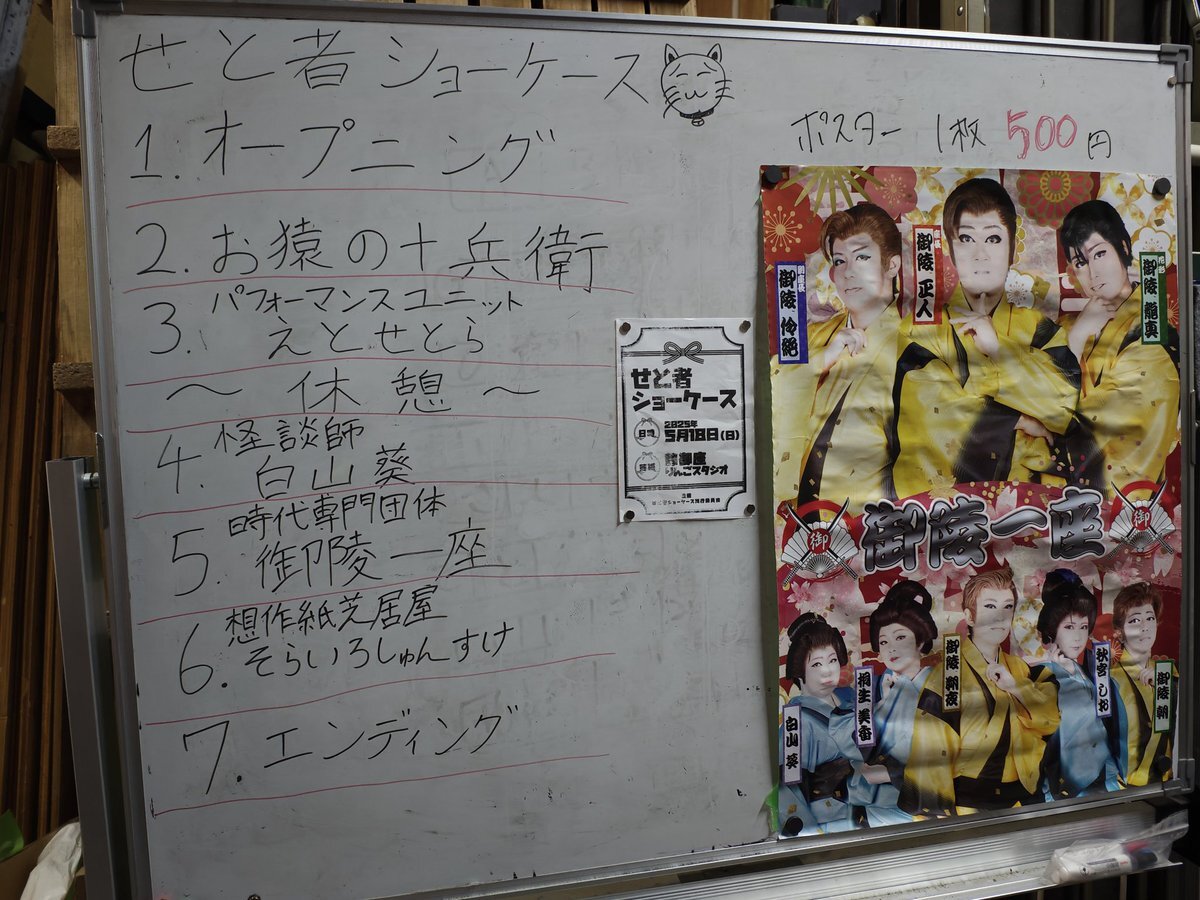 せと者ショーケース
1. オープニング
2. お猿の十兵衛
3. パフォーマンスユニット
えとせとら
～ 休憩 ～
4. 怪談師
白山 葵
5. 時代専門団体
御陵一座
6. 想作紙芝居屋
そらいろしゅんすけ
7. エンディング
せと者
ショーケース
日時
2025年
5月18日(日)
りんごスタジオ
ポスター 1枚 500円
御陵 伶艶
御陵 正人
御陵 龍真
御陵一座
御
御
白山 葵
桐生 美香
御陵 朔夜
秋宮 しお
御陵 朝